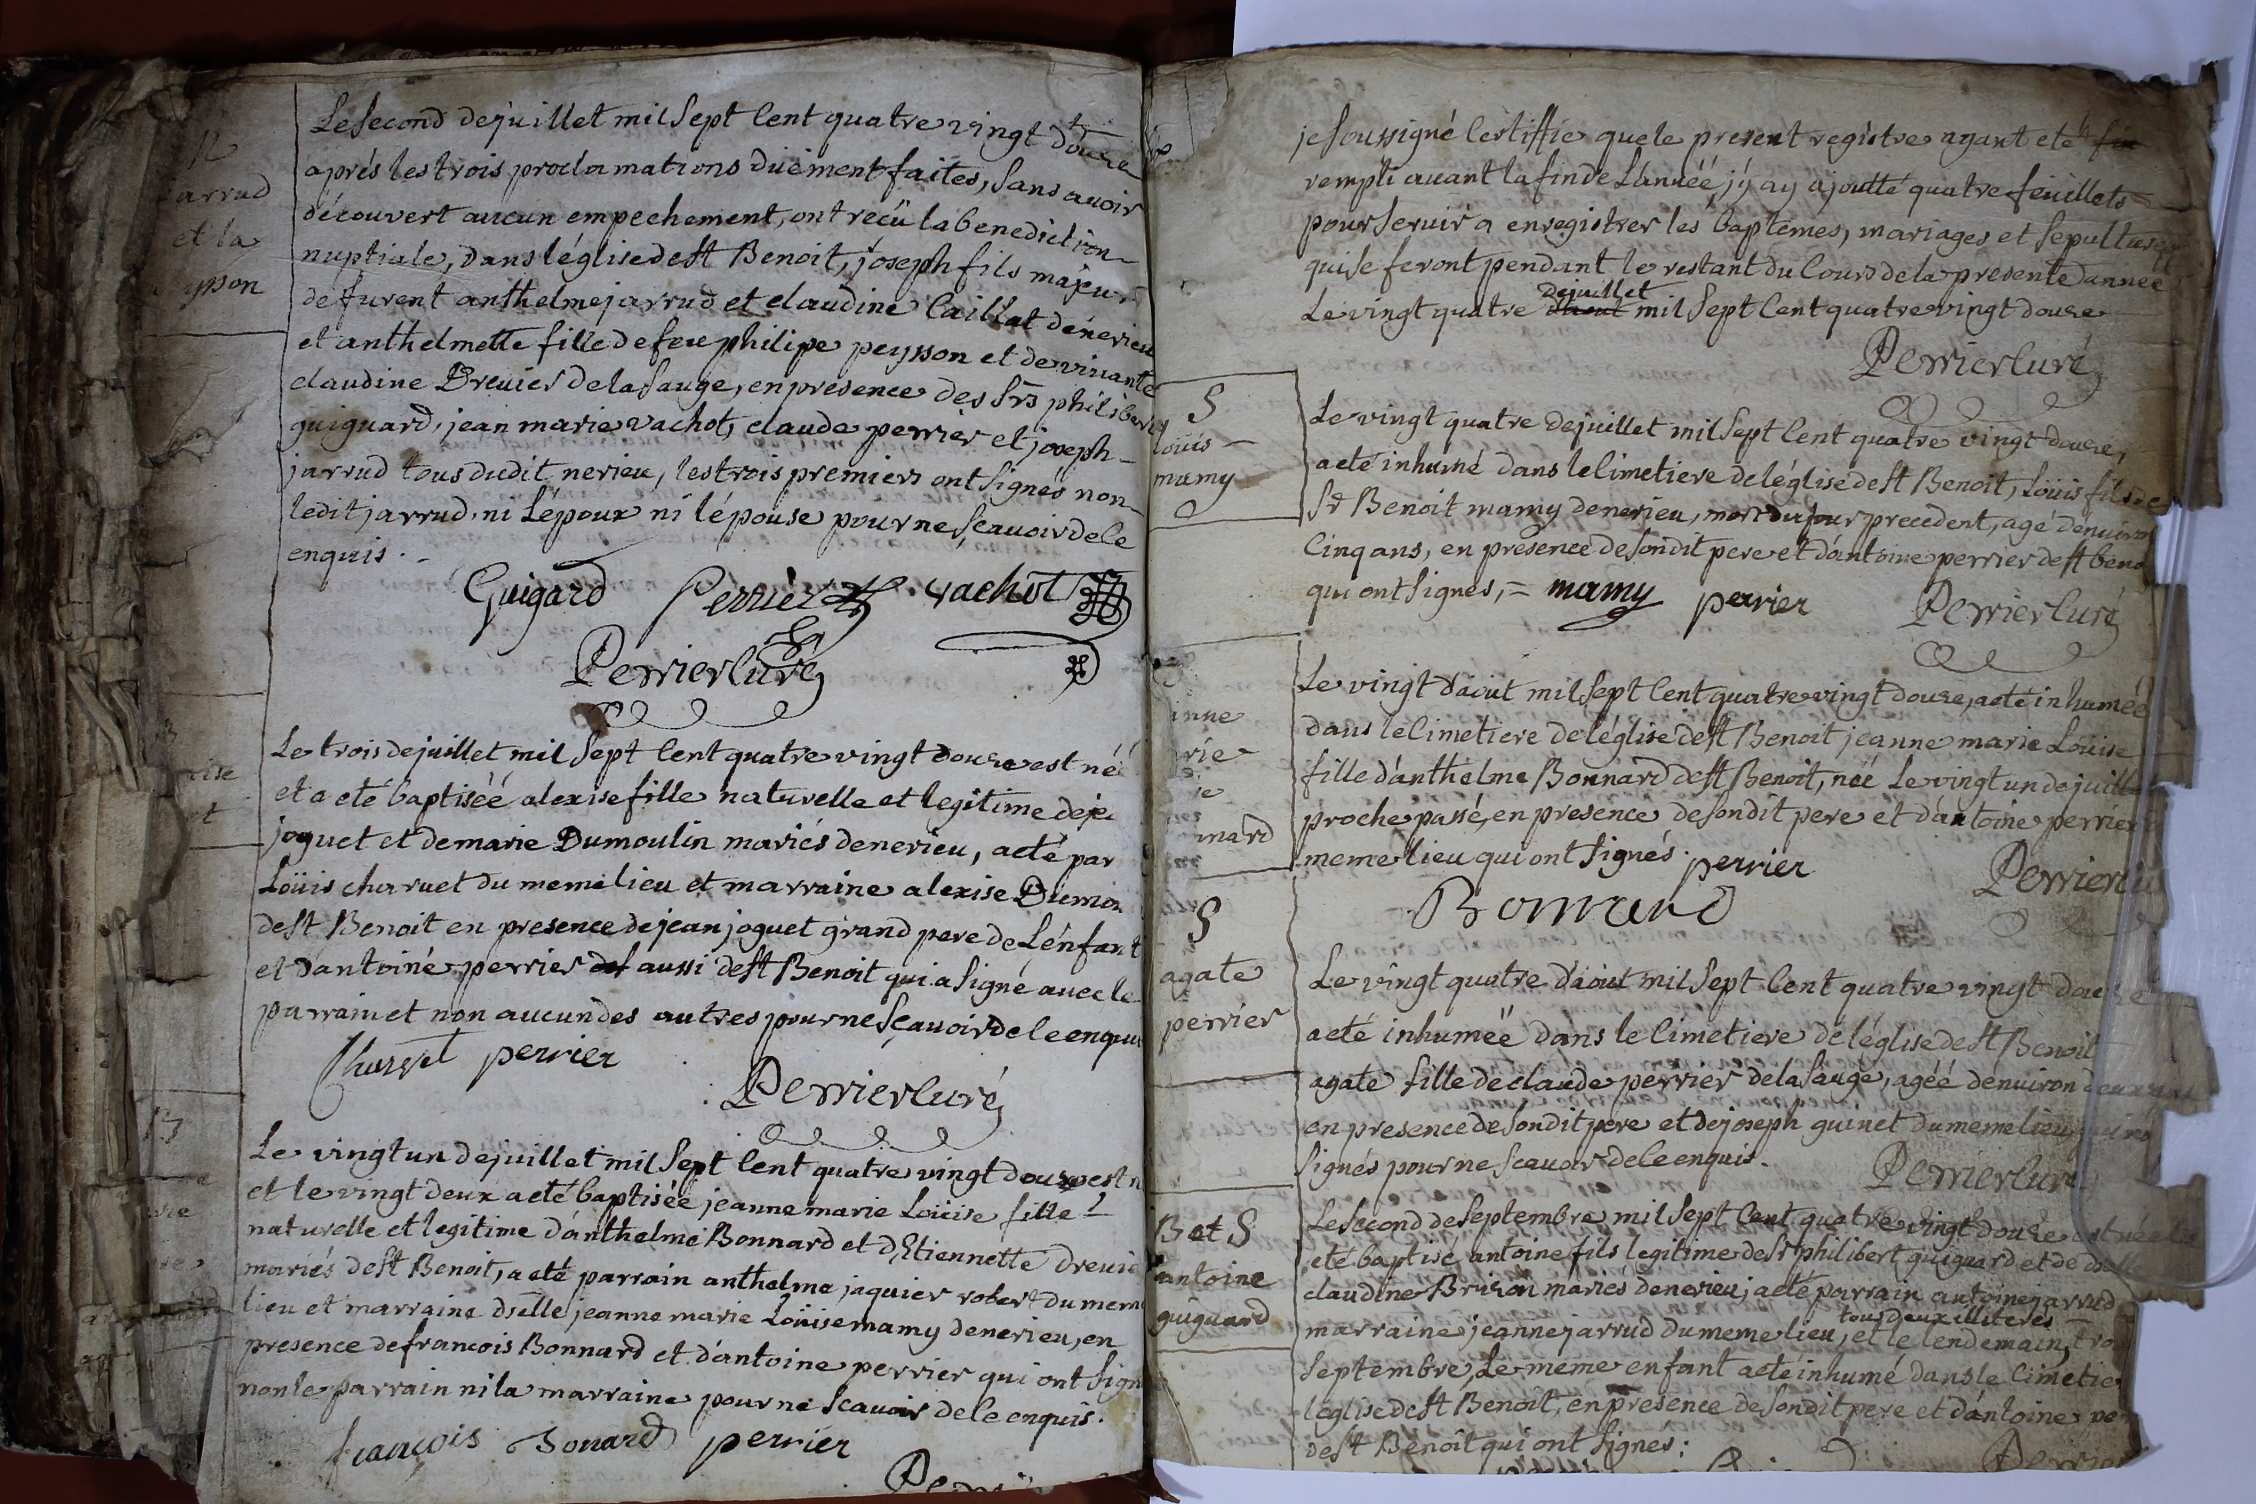 Le second de juillet mil sept cent quatre vingt douze
après les trois proclamations duëment faites, sans avoir
découvert aucun empechement, ont recü la benediction
nuptiale, dans léglise de st Benoit, joseph fils majeur
de furent anthelme jarrud et claudine Caillat de nerieu
et anthelmette fille de feu philipe peysson et de vivante
claudine Drevier de la sauge, en presence des srs philibert
guiguard, jean marie vachot, claude perrier et joseph
jarrud tous dudit nerieu, les trois premiers ont signés non
ledit jarrud, ni lépoux ni lépouse pour ne sçavoir de ce
enquis.
Guigard Perrier vachot
Perrier Curé
Le trois de juillet mil sept cent quatre vingt douze est né
et a eté baptiséé alexise fille naturelle et legitime de
joguet et de marie Dumoulin mariés de nerieu, a eté par
Loüis charuet du meme lieu et marraine alexise
de st Benoit en presence de jean joguet grand pere de Lénfant
et dantoine perrier aussi de st Benoit qui a signé avec le
parrain et non aucun des autres pour ne sçavoir de ce enquis
Charvet perrier
Perrier Curé
Le vingt un de juillet mil sept cent quatre vingt douze est n
et le vingt deux a eté baptisée jeanne marie Loüise fille
naturelle et legitime dánthelme Bonnard et d'Etiennette drevie
mariés de st Benoit, a eté parrain anthelme jaquier robert du mem
lieu et marraine dselle jeanne marie Loüise mamy de nerieu, en
presence de francois Bonnard et dántoine perrier qui ont sign
non le parrain ni la marraine pour ne scavoir de ce enquis.
francois Bonard perrier
arrud
et la
ysson
je soussigné Certiffie que le present registre ayant eté
rempli avant la fin de Lánnéé, jÿ ay ajoutté quatre feüillets
pour servir a enregistrer les baptêmes, mariages et sepultures
qui se feront pendant le restant du Cours de la presente année
de juillet
Le vingt quatre mil sept cent quatre vingt douze
Perrier Curé
S
loüis
mamy
Le vingt quatre de juillet mil sept cent quatre vingt douze,
a eté inhumé dans le Cimetiere de léglise de st Benoit, Loüis fils de
sr Benoit mamy de nerieu, mort du jour precedent, agé dénviron
Cinq ans, en presence de son dit pere et dántoine perrier de st beno
qui ont signés, = mamy perrier Perrier Curé
nard
Le vingt d'aout mil sept cent quatre vingt douze, a eté inhuméé
dans le Cimetiere de léglise de st Benoit jeanne marie Loüise
fille dánthelme Bonnard de st Benoit, néé Le vingt un de juill
proche passé, en presence de son dit pere et dántoine perrier
meme lieu qui ont signés. perrier
Bonnard Perrier
S
agate
perrier
Le vingt quatre d'aoüt mil sept cent quatre vingt douze
a eté inhuméé dans le Cimetiere de léglise de st Benoit
agate fille de claude perrier de la sauge, agéé dénviron deux ans
en presence de son dit pere et de joseph guinet du meme lieu
signés pour ne scavoir de ce enquis.
Perrier Curé
B et S
antoine
guiguard
Le second de septembre mil sept cent quatre vingt douze est né
eté baptisé antoine fils legitime de sr philibert guiguard et de dselle
claudine Brizon mariés de nerieu, a eté parrain antoine jarrud
tous deux illiteres
marraine jeanne jarrud du meme lieu, et le lendemain trois
septembre, Le meme enfant a eté inhumé dans le Cimetie
léglise de st Benoit, en presence de son dit pere et dántoine pe
de st Benoit qui ont signés: